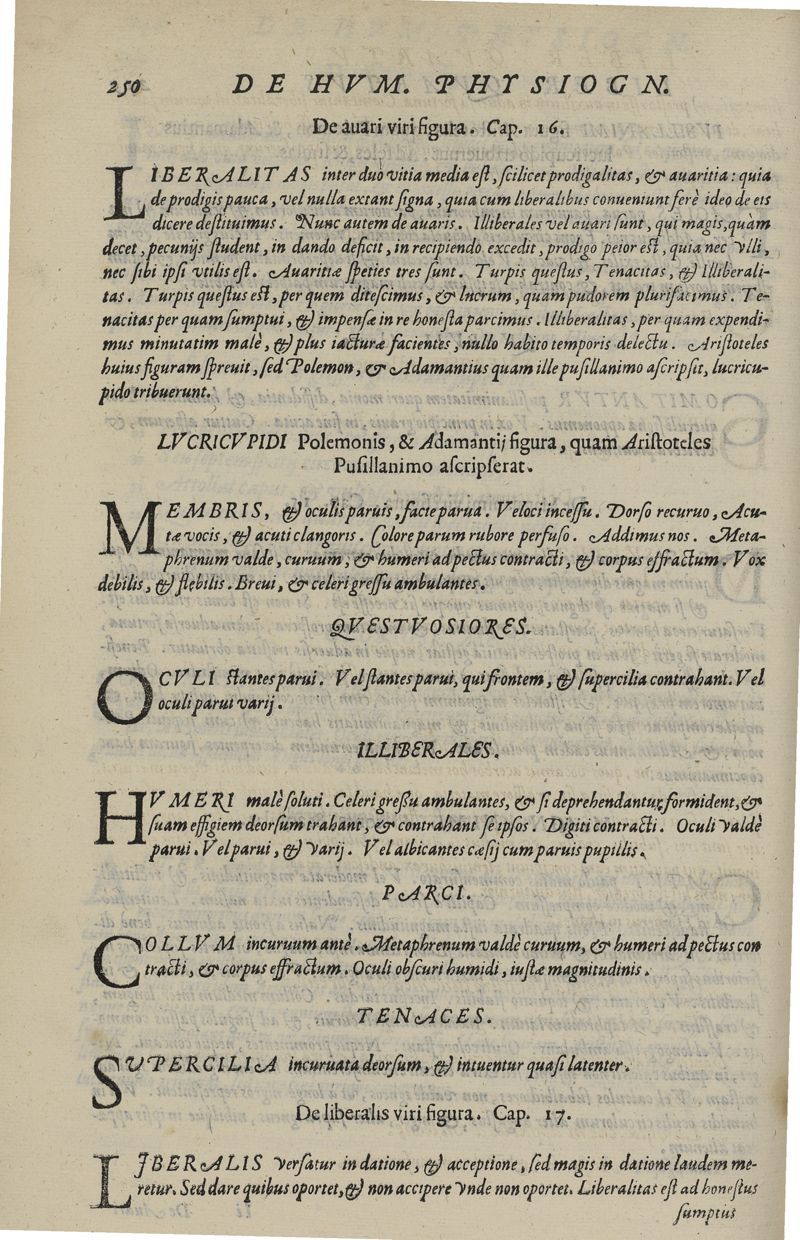 250 DE HVM. PHYSIOGN.
De auari viri figura. Cap. 16.
LIBERALITAS inter duo vitia media est, scilicet prodigalitas, & auaritia: quia
de prodigis pauca, vel nulla extant signa, quia cum liberalibus conueniunt ferè ideo de eis
dicere destituimus. Nunc autem de auaris. Illiberales vel auari sunt, qui magis, quàm
decet, pecunijs student, in dando deficit, in recipiendo excedit, prodigo peior est, quia nec vlli,
nec sibi ipsi vtilis est. Auaritiæ species tres sunt. Turpis questus, Tenacitas, & Illiberali-
tas. Turpis questus est, per quem ditescimus, & lucrum, quam pudorem plurifacimus. Te-
nacitas per quam sumptui, & impensæ in re honesta parcimus. Illiberalitas, per quam expendi-
mus minutatim malè, & plus iacturæ facientes, nullo habito temporis delectu. Aristoteles
huius figuram spreuit, sed Polemon, & Adamantius quam ille pusillanimo ascripsit, lucricu-
pido tribuerunt.
LVCRICVPIDI Polemonis, & Adamantij figura, quam Aristoteles
Pusillanimo ascripserat.
MEMBRIS, & oculis paruis, facie parua. Veloci incessu. Dorso recuruo, Acu-
tæ vocis, & acuti clangoris. Colore parum rubore perfuso. Addimus nos. Meta-
phrenum valde, curuum, & humeri ad pectus contracti, & corpus effractum. Vox
debilis, & flebilis. Breui, & celeri gressu ambulantes.
QVESTVOSIORES.
OCVLI stantes parui. Vel stantes parui, qui frontem, & supercilia contrahant. Vel
oculi parui varij.
ILLIBERALES.
HVMERI malè soluti. Celeri gressu ambulantes, & si deprehendantur formident, &
suam effigiem deorsum trahant, & contrahant se ipsos. Digiti contracti. Oculi valdè
parui. Vel parui, & varij. Vel albicantes cæsij cum paruis pupillis.
PARCI.
COLLVM incuruum antè. Metaphrenum valdè curuum, & humeri ad pectus con
tracti, & corpus effractum. Oculi obscuri humidi, iustæ magnitudinis.
TENACES.
SVPERCILIA incuruata deorsum, & intuentur quasi latenter.
De liberalis viri figura. Cap. 17.
LIBERALIS versatur in datione, & acceptione, sed magis in datione laudem me-
retur. Sed dare quibus oportet, & non accipere vnde non oportet. Liberalitas est ad honestus
sumptus